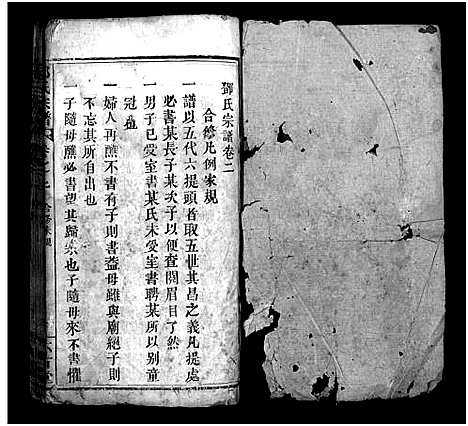 鄧氏宗譜卷二
合修凡例家規
一譜以五代六提頭首取五世其昌之義凡提處
必書某長子某次子以便查閱眉目了然
一男子已娶室書某氏未娶室書聘某所以別童
冠也
一婦人再醮不書有子則書蓋母雖與廟絕子則
不忘其所自出也
一子隨母醮必書望其歸宗也子隨母來不書懼